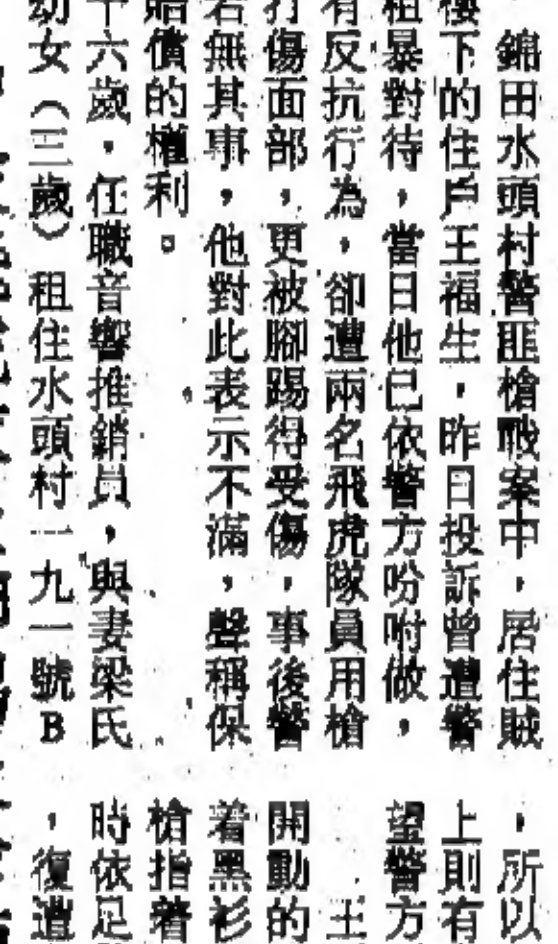 錦田水頭村警匪槍戰案中，居住賊
樓下的住戶王福生，昨日投訴曾遭警
粗暴對待，當日他已依警方吩咐做，
有反抗行為，卻遭兩名飛虎隊員用槍
打傷面部，更被腳踢得受傷，事後警
若無其事，他對此表示不滿，聲稱保
賠償的權利。
十六歲，任職音響推銷員，與妻梁氏
幼女（三歲）租住水頭村一九一號B
，所以
上則有
望警方
王
開動的
着黑衫
槍指着
時依足
，復遭